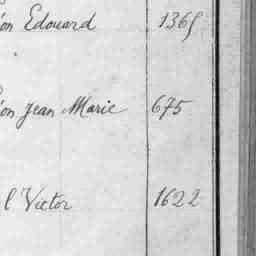 on Edouard 1365
on Jean Marie 675
l Victor 1622